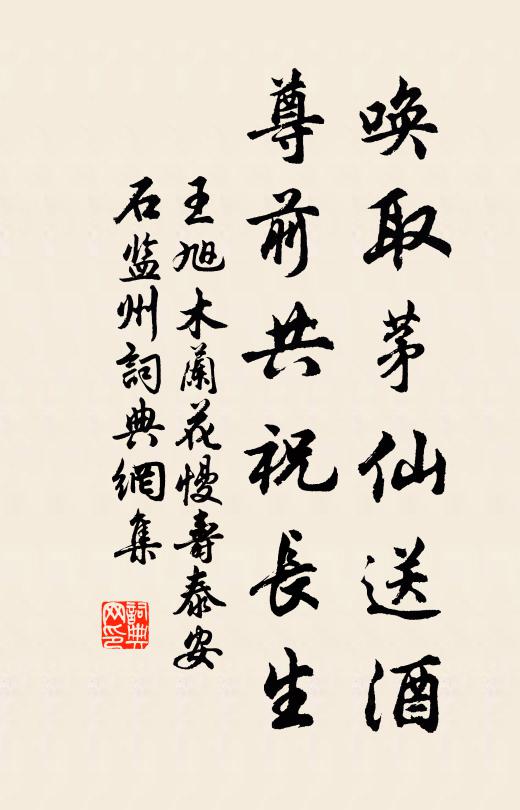 喚取茅仙送酒
尊前共祝長生
王旭木蘭花慢壽泰安
石监州詞典網集
詞典
网印